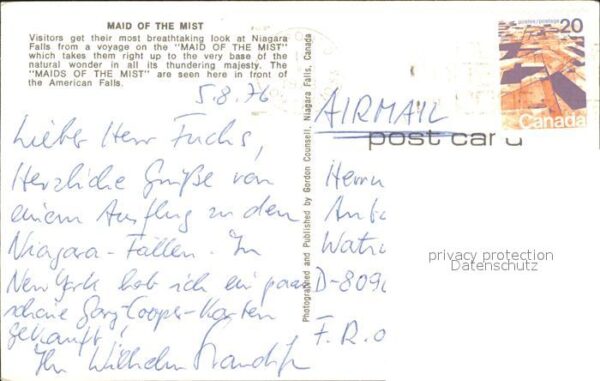 MAID OF THE MIST
Visitors get their most breathtaking look at Niagara
Falls from a voyage on the "MAID OF THE MIST"
which takes them right up to the very base of the
natural wonder in all its thundering majesty. The
"MAIDS OF THE MIST" are seen here in front of
the American Falls.
5.8.76
Lieber Herr Fuchs,
Herzliche Grüße von
einem Ausflug zu den
Niagara-Fällen. In
New York hab ich ein paar
schöne Gary-Cooper-Karten
gekauft!
Ihr Wilhelm
Photographed and Published by Gordon Counsell, Niagara Falls, Canada
postes/postage
20
Canada
AIRMAIL
post card
Herrn
D-809
F.R.O
privacy protection
Datenschutz